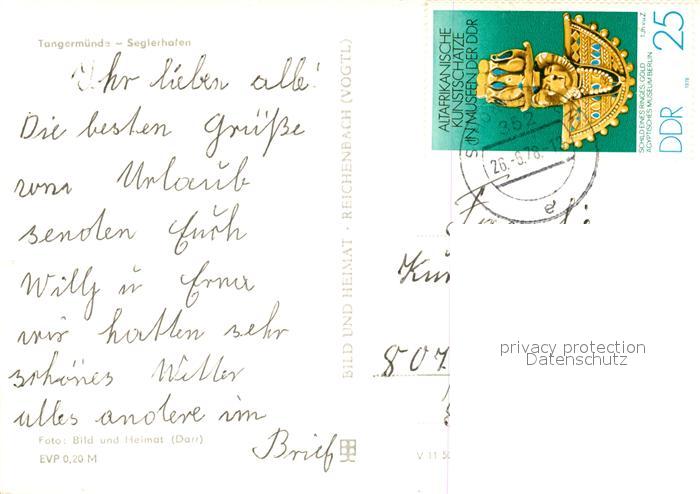 Tangermünde – Seglerhafen
Ihr lieben alle!
Die besten Grüße
vom Urlaub
senden Euch
Willy u Erna
wir hatten sehr
schönes Wetter
alles andere im
Brief
Foto: Bild und Heimat (Darr)
EVP 0,20 M
BILD UND HEIMAT · REICHENBACH (VOGTL)
V 11 50
ALTAFRIKANISCHE
KUNSTSCHÄTZE
IN MUSEEN DER DDR
SCHILD EINES RINGES, GOLD
ÄGYPTISCHES MUSEUM BERLIN
1.Jh.v.u.Z.
DDR 25
1978
352
26.-6.78
e
807
privacy protection
Datenschutz